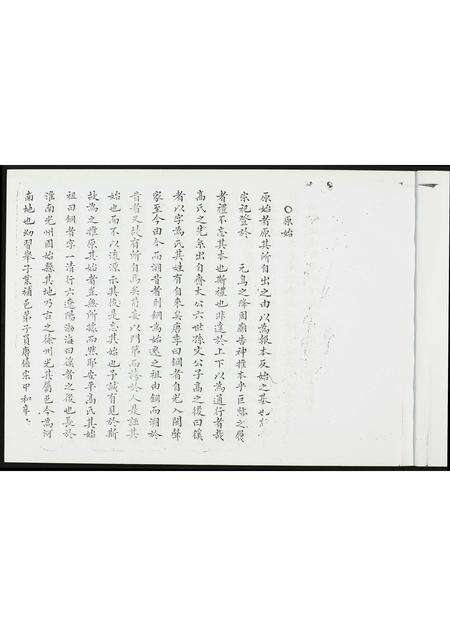 ○原始
原始者原其所自出之由以為報本反始之基也
宗祀登於 元鳥之降周廟告神推本乎巨跡之履
者禮不忘其本也斯禮也非達於上下以為通行者哉
高氏之先系出自齊太公六世孫文公子高之後曰傒
者以字為氏其姓有自來矣唐季曰鋼者自光入閩聲
家至今由今而溯昔者則鋼為始遷之祖由鋼而溯於
昔昔又故有所自焉矣苟妄以門第而誇於人是誣其
始也而不以淡源示其後是忘其始也予誠有見於斯
故為之推原其始者並無所據而然耶安平高氏其始
祖曰鋼者字一清行六遼陽渤海曰傒者之後也長於
淮南光州固始縣其地乃古之徐州光其屬邑今為河
南地也幼習舉子業補邑弟子員唐僖宗中和年